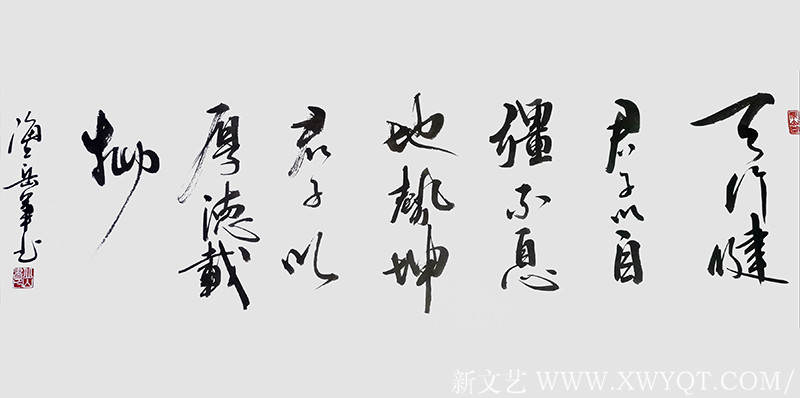 天行健
君子以自
彊不息
地勢坤
君子以
厚德載
物
岳
新文艺 WWW.XWYQT.COM/